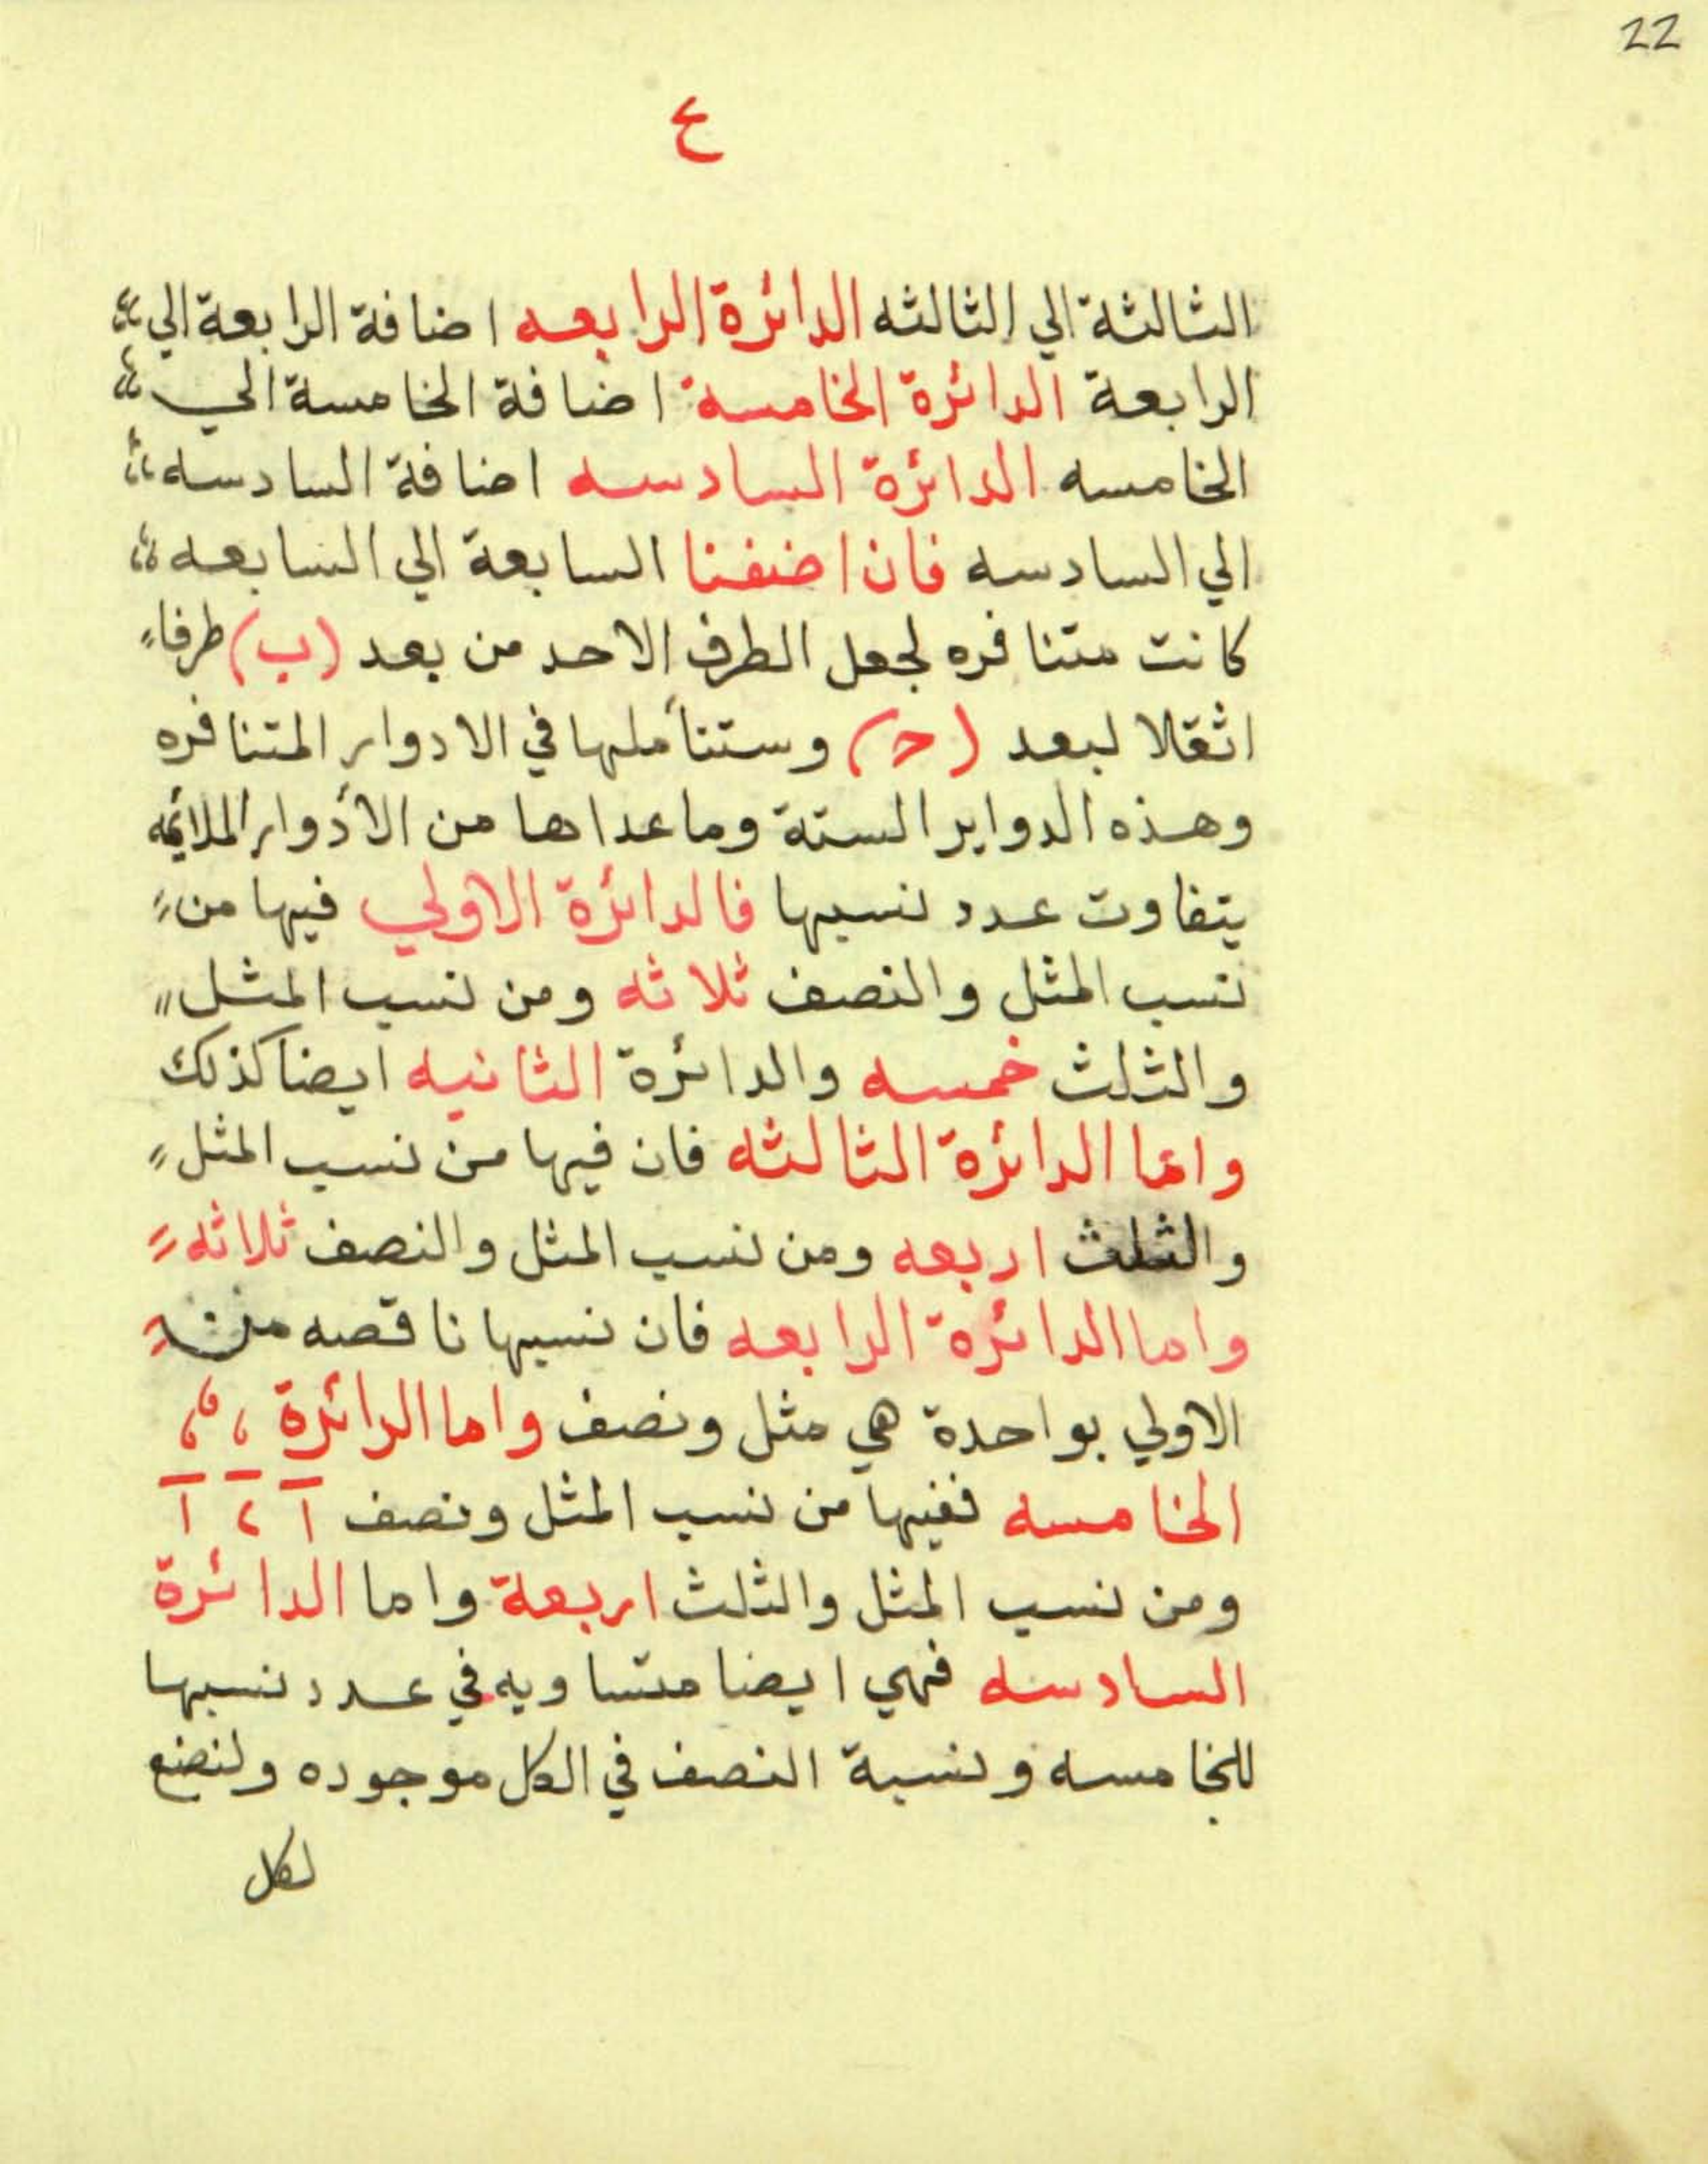 22
ع
الثالثة الي الثالثه الدائرة الرابعه اضافة الرابعة الي
الرابعة الدائرة الخامسة اضافة الخامسة الي
الخامسه الدائرة السادسه اضافة السادسه
الي السادسه فان اضفنا السابعة الي السابعه
كانت متنافره لجعل الطرف الاحد من بعد (ب) طرفا
اثقلا لبعد (ح) وستتأملها في الادوار المتنافره
وهذه الدواير الستة وما عداها من الأدوار الملائمه
يتفاوت عدد نسبها فالدائرة الاولي فيها من
نسب المثل والنصف ثلاثه ومن نسب المثل
والثلث خمسه والدائرة الثانيه ايضا كذلك
واما الدائرة الثالثه فان فيها من نسب المثل
والثلث اربعه ومن نسب المثل والنصف ثلاثه
واما الدائرة الرابعه فان نسبها ناقصه من
الاولي بواحدة هي مثل ونصف واما الدائرة
الخامسه ففيها من نسب المثل ونصف
ومن نسب المثل والثلث اربعة واما الدائرة
السادسه فهي ايضا متساويه في عدد نسبها
للخامسه ونسبة النصف في الكل موجوده ولنضع
لكل